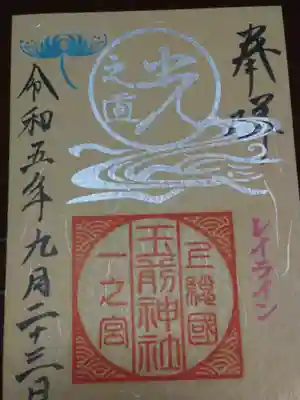 奉拝
光之道
レイライン
上総國
玉前神社
一之宮
令和五年九月二十三日